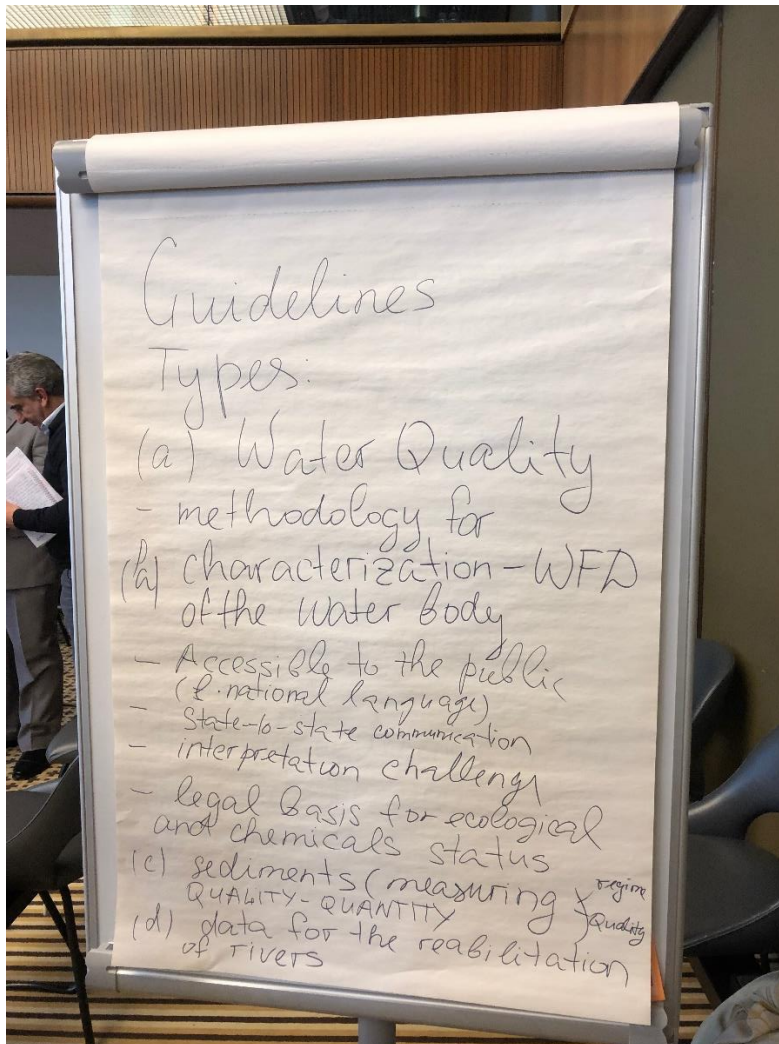 Guidelines
Types:
(a) Water Quality
- methodology for
(b) characterization - WFD
of the water body
- Accessible to the public
(. national language)
- State-to-state communication
- interpretation challeng
- legal basis for ecological
and chemicals status
(c) sediments (measuring regime
QUALITY - QUANTITY Quality
(d) data for the reabilitation
of rivers